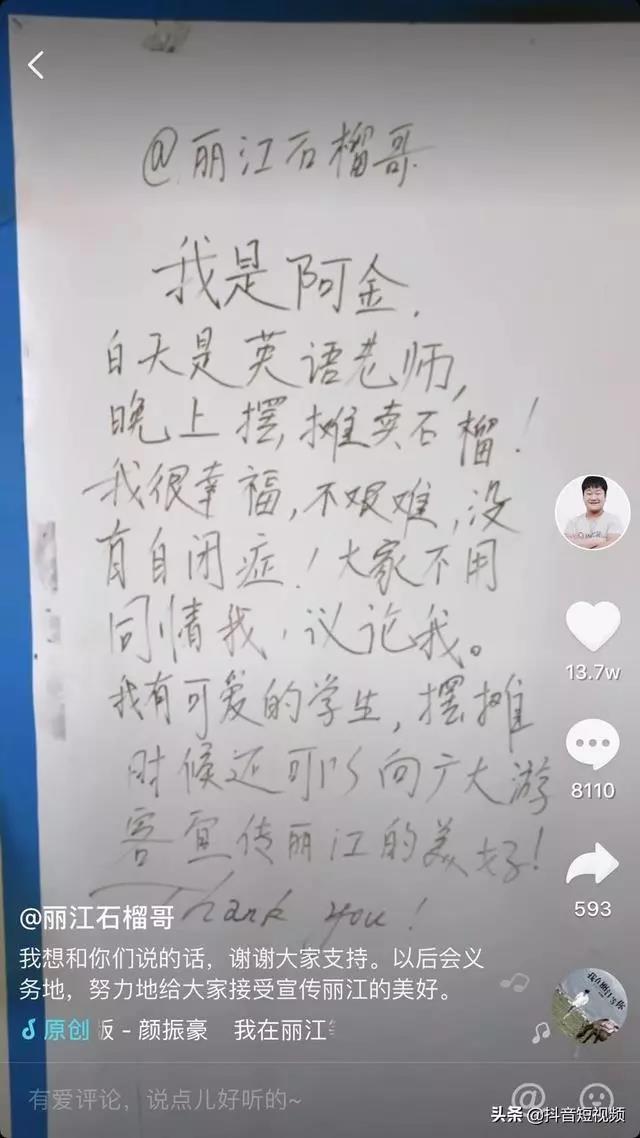 @丽江石榴哥
我是阿金.
白天是英语老师,
晚上摆摊卖石榴!
我很幸福,不艰难,没
有自闭症!大家不用
同情我,议论我。
我有可爱的学生,摆摊
时候还可以向广大游
客宣传丽江的美好!
Thank you!
13.7w
8110
593
@丽江石榴哥
我想和你们说的话，谢谢大家支持。以后会义
务地，努力地给大家接受宣传丽江的美好。
原创 版 - 颜振豪 我在丽江
我在丽江等你
有爱评论，说点儿好听的~
头条 @抖音短视频